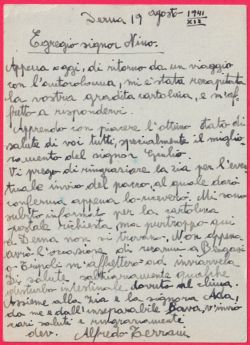 Derna 19 agosto 1941
XIX
Egregio signor Nino.
Appena oggi, di ritorno da un viaggio
con l'autocolonna, mi è stata recapitata
la vostra gradita cartolina, e m'af-
fretto a rispondervi.
Apprendo con piacere l'ottimo stato di
salute di voi tutti, specialmente il miglio-
ramento del signor Giulio.
Vi prego di ringraziare la zia per l'even-
tuale invio del pacco, al quale darò
conferma appena lo riceverò. Mi sono
subito informato per la cartolina
postale richiesta ma purtroppo qui
a Derna non si trovano. Non appena
avrò l'occasione di recarmi a Bengasi
o Tripoli m'affretterò ad inviarvela
Di salute saltuariamente qualche
disturbo intestinale dovuto al clima.
Assieme alla zia e la signora Ada,
da me e dall'inseparabile Bava, v'invio
cari saluti e ringraziamenti
dev. Alfredo Terrani